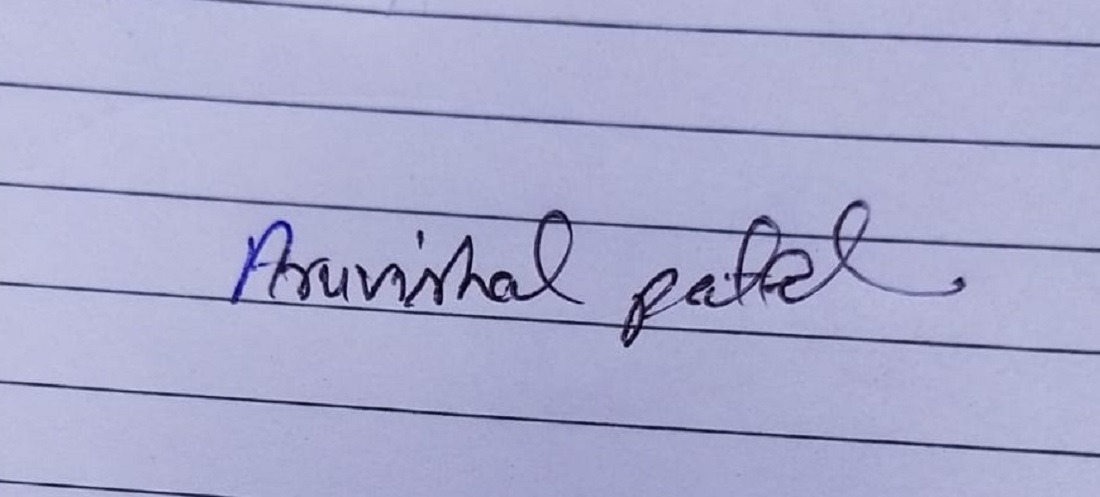 Aruvishal patel